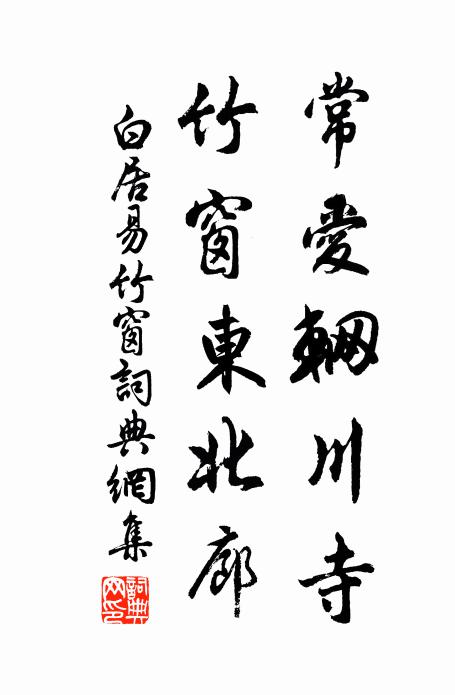 常愛輞川寺
竹窗東北廊
白居易竹窗詞典網集
詞典网印